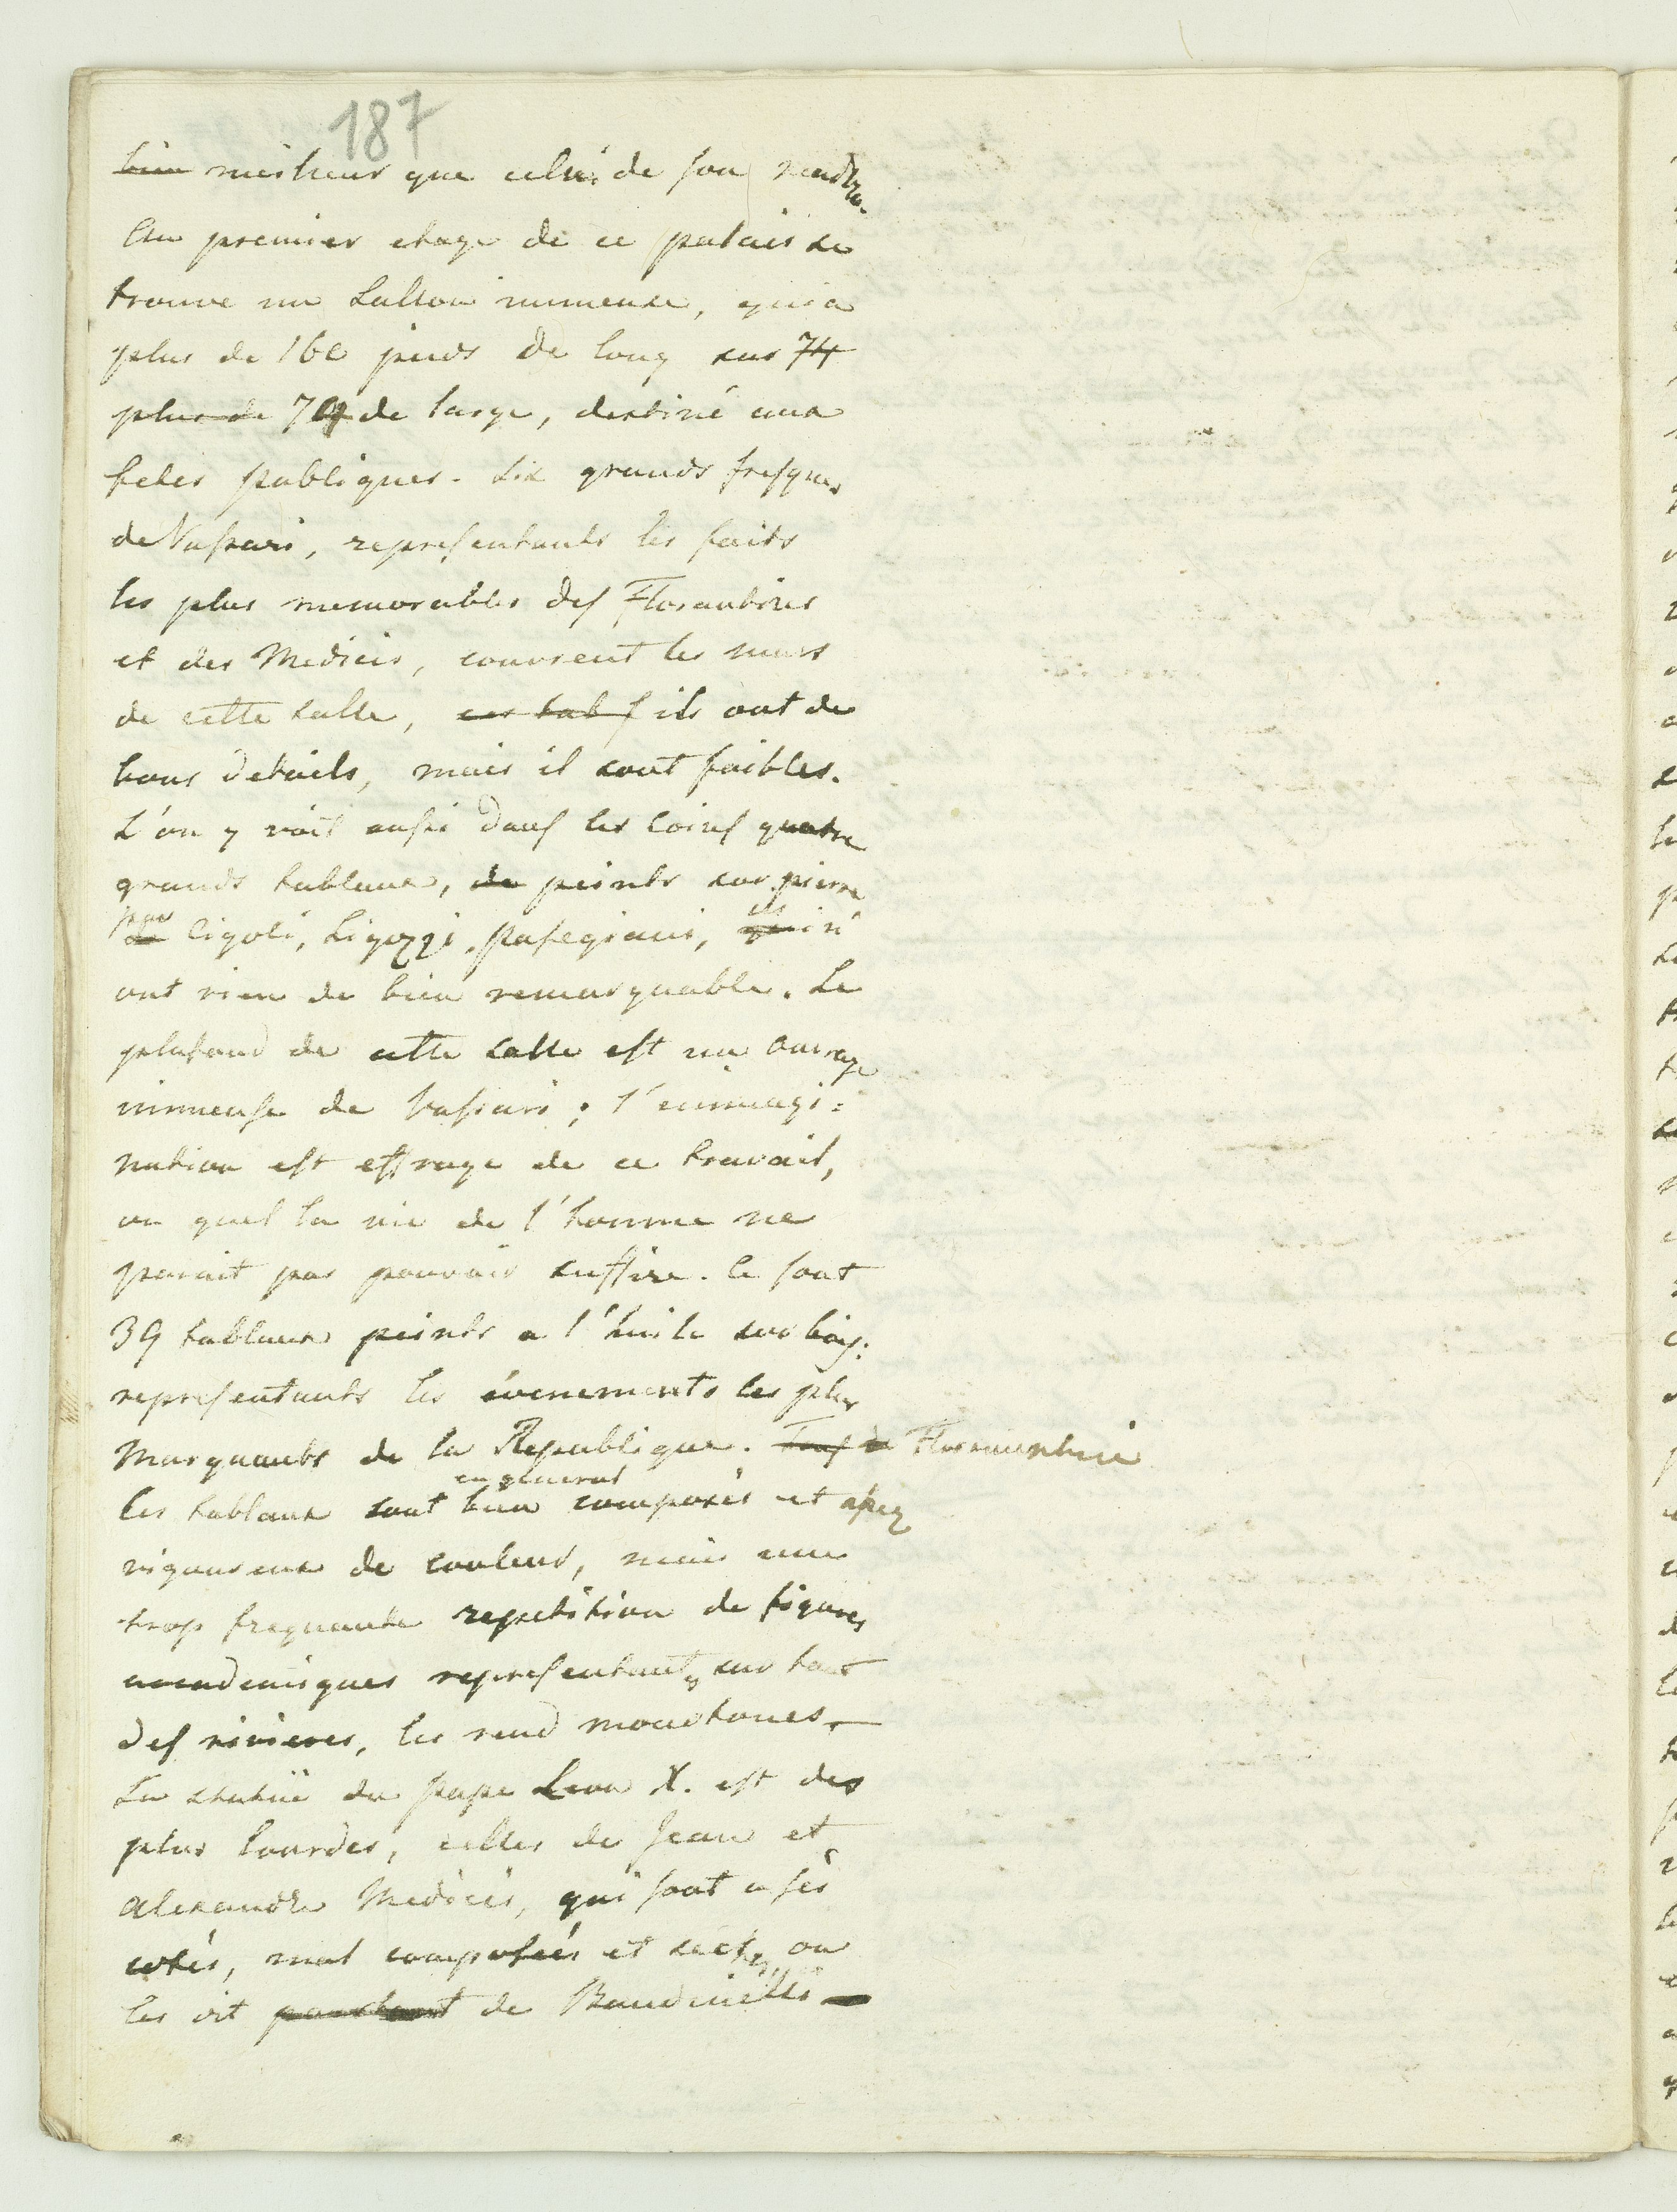 187
bien meilleur que celui de son
Au premier etage de ce palais se
trouve un Sallon immense, qui a
plus de 160 pieds de long sur 74
plus de 74 de large, destiné aux
fetes publiques. Six grands fresques
de Vasari, representants les faits
les plus memorables des Florantins
et des Medicis, couvrent les murs
de cette salle, ces tab ils ont de
bons details, mais il sont faibles.
L'on y voit aussi dans les coins quatre
grands tableaux, de peints sur pierre
par de Cigoli, Ligozzi, Passegiani, ils qui n'
ont rien de bien remarquable. Le
plafond de cette salle est un ouvrage
immense de Vasari; l'immagi=
nation est effraye de ce travail,
au quel la vie de l'homme ne
parait pas pouvoir suffire. Ce sont
39 tableaux peints a l'huile sur bois:
representants les évenements les plus
marquants de la Republique. Florauntine
les tableaux sont en general bien composés et assez
vigoureux de couleur, mais une
trop frequante repetition de figures
academiques representants sur tout
des rivieres, les rend monotones.—
La statüe du pape Leon X. est des
plus lourdes, celles de Jean et
Alexandre Medicis, qui sont a ses
cotés, mal composées et seches, on
les dit pourtant de Bandinelli —